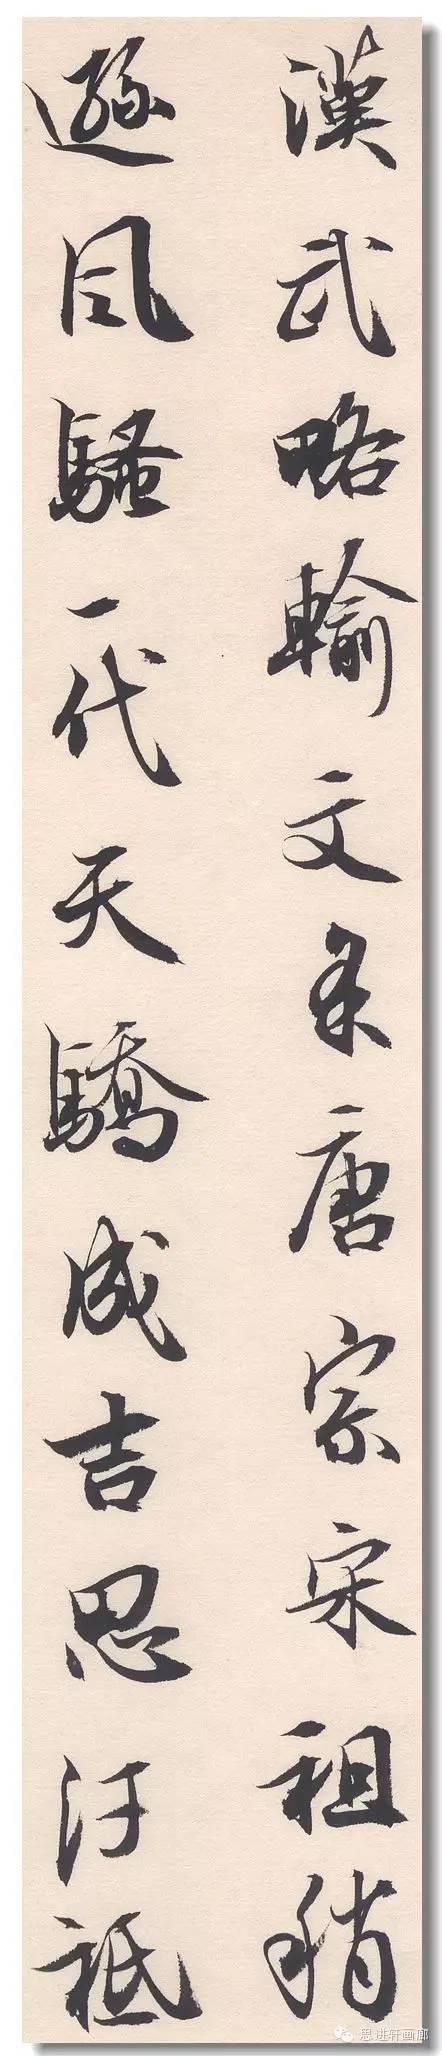 漢武略輸文采唐宗宋祖稍
遜風騷一代天驕成吉思汗祗
思进轩画廊